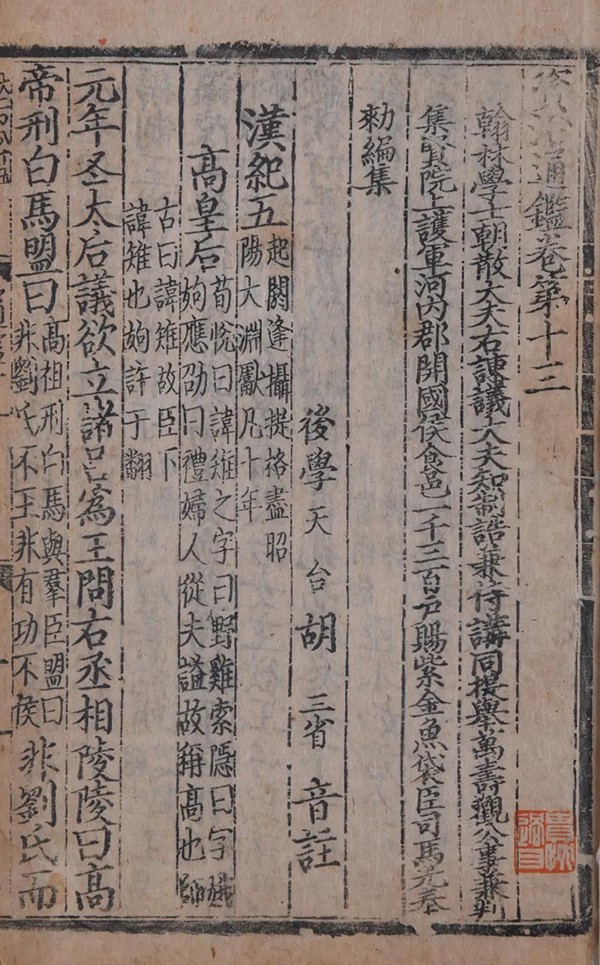 資治通鑑卷第十三
翰林學士朝散大夫右諫議大夫知制誥兼侍講同提舉萬壽觀公事兼判
集賢院上護軍河內郡開國侯食邑一千三百戶賜紫金魚袋臣司馬光奉
勑編集
後學天台胡三省音註
漢紀五起閼逢攝提格盡昭
陽大淵獻凡十年
高皇后荀悅曰諱雉之字曰野雞索隱曰字娥
姁應劭曰禮婦人從夫謚故稱高也師
古曰諱雉故臣下
諱雉也姁許于翻
元年冬太后議欲立諸呂為王問右丞相陵陵曰高
帝刑白馬盟曰高祖刑白馬與羣臣盟曰
非劉氏不王非有功不侯非劉氏而